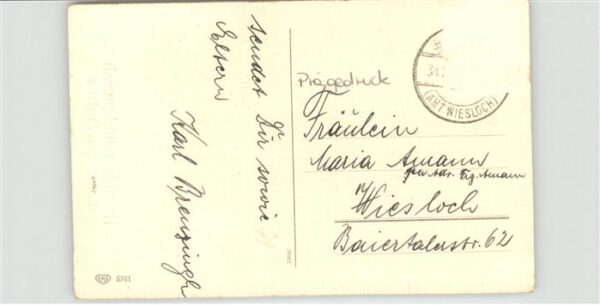 sendet Dir sowie
Eltern
Karl
EAS 5761
Prägedruck
(AMT WIESLOCH)
Fräulein
Maria Amann
Amann
Wiesloch
Baiertalerstr. 62